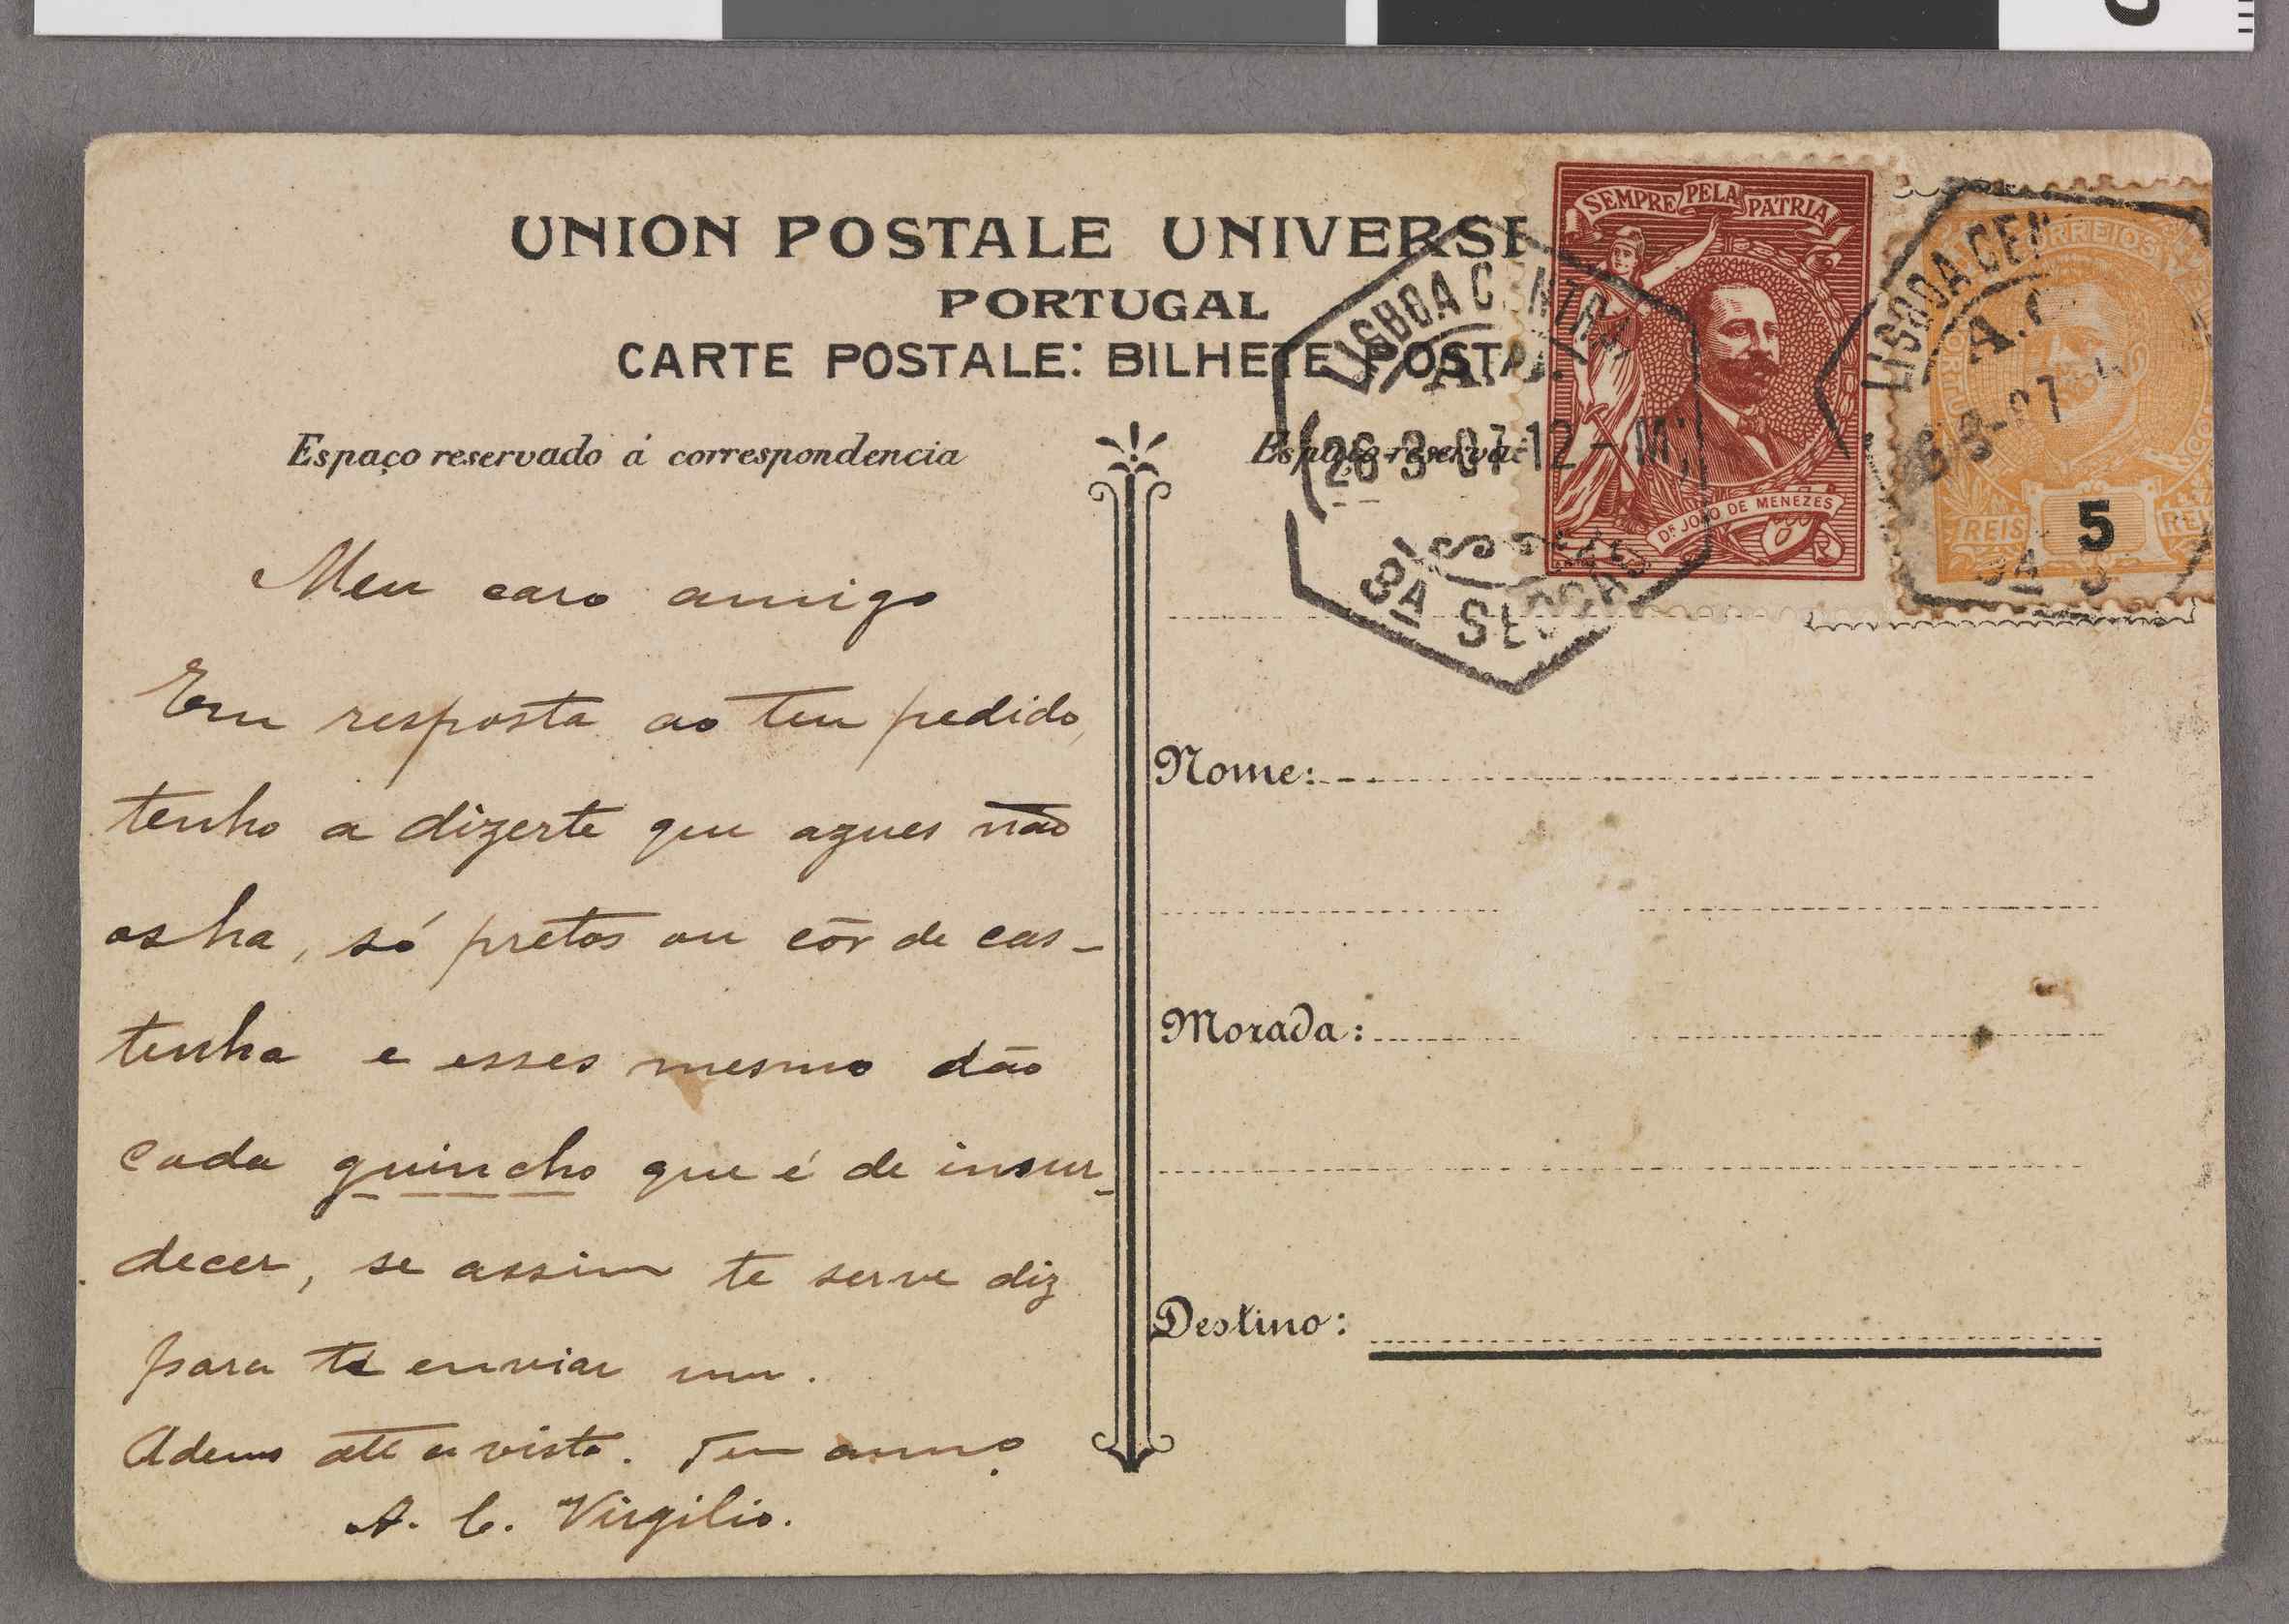 UNION POSTALE UNIVERSE
PORTUGAL
CARTE POSTALE: BILHETE POSTAL
Espaço reservado á correspondencia
Meu caro amigo
Em resposta ao teu pedido,
tenho a dizerte que azues não
os ha, só pretos ou côr de cas-
tenha e esses mesmo dão
cada guincho que é de insur-
decer, se assim te serve diz
para te enviar um.
Adeus até á vista. Teu am.º
A. C. Virgilio.
SEMPRE PELA PATRIA
DR. JOÃO DE MENEZES
LISBOA CENTRAL
26 3-07 12-M
3A SECÇÃO
CORREIOS
REIS 5 REIS
LISBOA CEN
3-07
Espaço reserva
Nome:
Morada:
Destino: